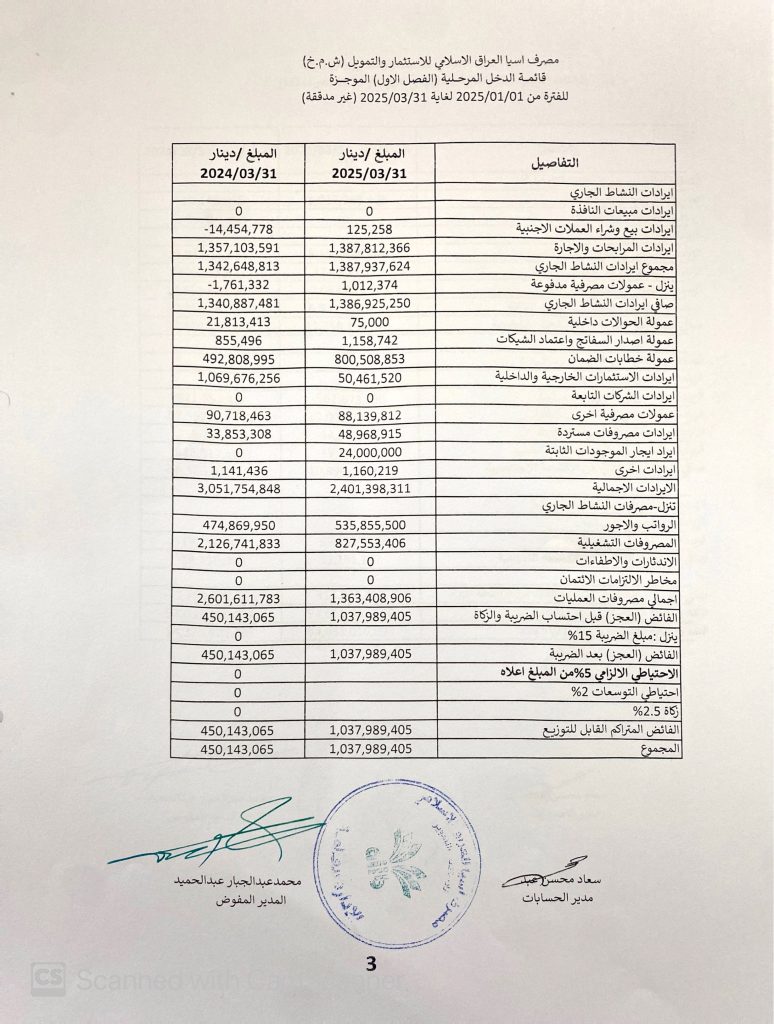 مصرف اسيا العراق الاسلامي للاستثمار والتمويل (ش.م.خ)
قائمة الدخل المرحلية (الفصل الاول) الموجزة
للفترة من 2025/01/01 لغاية 2025/03/31 (غير مدققة)
التفاصيل المبلغ /دينار 2025/03/31 المبلغ /دينار 2024/03/31
ايرادات النشاط الجاري
ايرادات مبيعات النافذة 0 0
ايرادات بيع وشراء العملات الاجنبية 125,258 -14,454,778
ايرادات المرابحات والاجارة 1,387,812,366 1,357,103,591
مجموع ايرادات النشاط الجاري 1,387,937,624 1,342,648,813
ينزل - عمولات مصرفية مدفوعة 1,012,374 -1,761,332
صافي ايرادات النشاط الجاري 1,386,925,250 1,340,887,481
عمولة الحوالات داخلية 75,000 21,813,413
عمولة اصدار السفاتج واعتماد الشيكات 1,158,742 855,496
عمولة خطابات الضمان 800,508,853 492,808,995
ايرادات الاستثمارات الخارجية والداخلية 50,461,520 1,069,676,256
ايرادات الشركات التابعة 0 0
عمولات مصرفية اخرى 88,139,812 90,718,463
ايرادات مصروفات مستردة 48,968,915 33,853,308
ايراد ايجار الموجودات الثابتة 24,000,000 0
ايرادات اخرى 1,160,219 1,141,436
الايرادات الاجمالية 2,401,398,311 3,051,754,848
تنزل-مصرفات النشاط الجاري
الرواتب والاجور 535,855,500 474,869,950
المصروفات التشغيلية 827,553,406 2,126,741,833
الاندثارات والاطفاءات 0 0
مخاطر الالتزامات الائتمان 0 0
اجمالي مصروفات العمليات 1,363,408,906 2,601,611,783
الفائض (العجز) قبل احتساب الضريبة والزكاة 1,037,989,405 450,143,065
ينزل :مبلغ الضريبة 15% 0
الفائض (العجز) بعد الضريبة 1,037,989,405 450,143,065
الاحتياطي الالزامي 5%من المبلغ اعلاه 0
احتياطي التوسعات 2% 0
زكاة 2.5% 0
الفائض المتراكم القابل للتوزيع 1,037,989,405 450,143,065
المجموع 1,037,989,405 450,143,065
سعاد محسن عبد
مدير الحسابات
محمدعبدالجبار عبدالحميد
المدير المفوض
3
CS Scanned with CamScanner